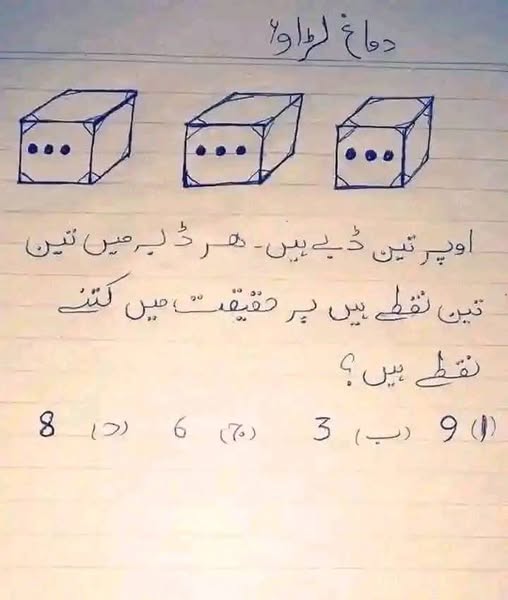 دماغ لڑاو؟
اوپر تین ڈبے ہیں۔ ہر ڈبہ میں تین
تین نقطے ہیں پر حقیقت میں کتنے
نقطے ہیں؟
(ا) 9 (ب) 3 (ج) 6 (د) 8